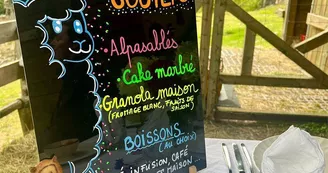 Alpasablés
Cake marbré
Granola maison
(FROMAGE BLANC, FRUITS DE
SAISON)
BOISSONS
(AU CHOIX)
INFUSION, CAFÉ
MAISON...